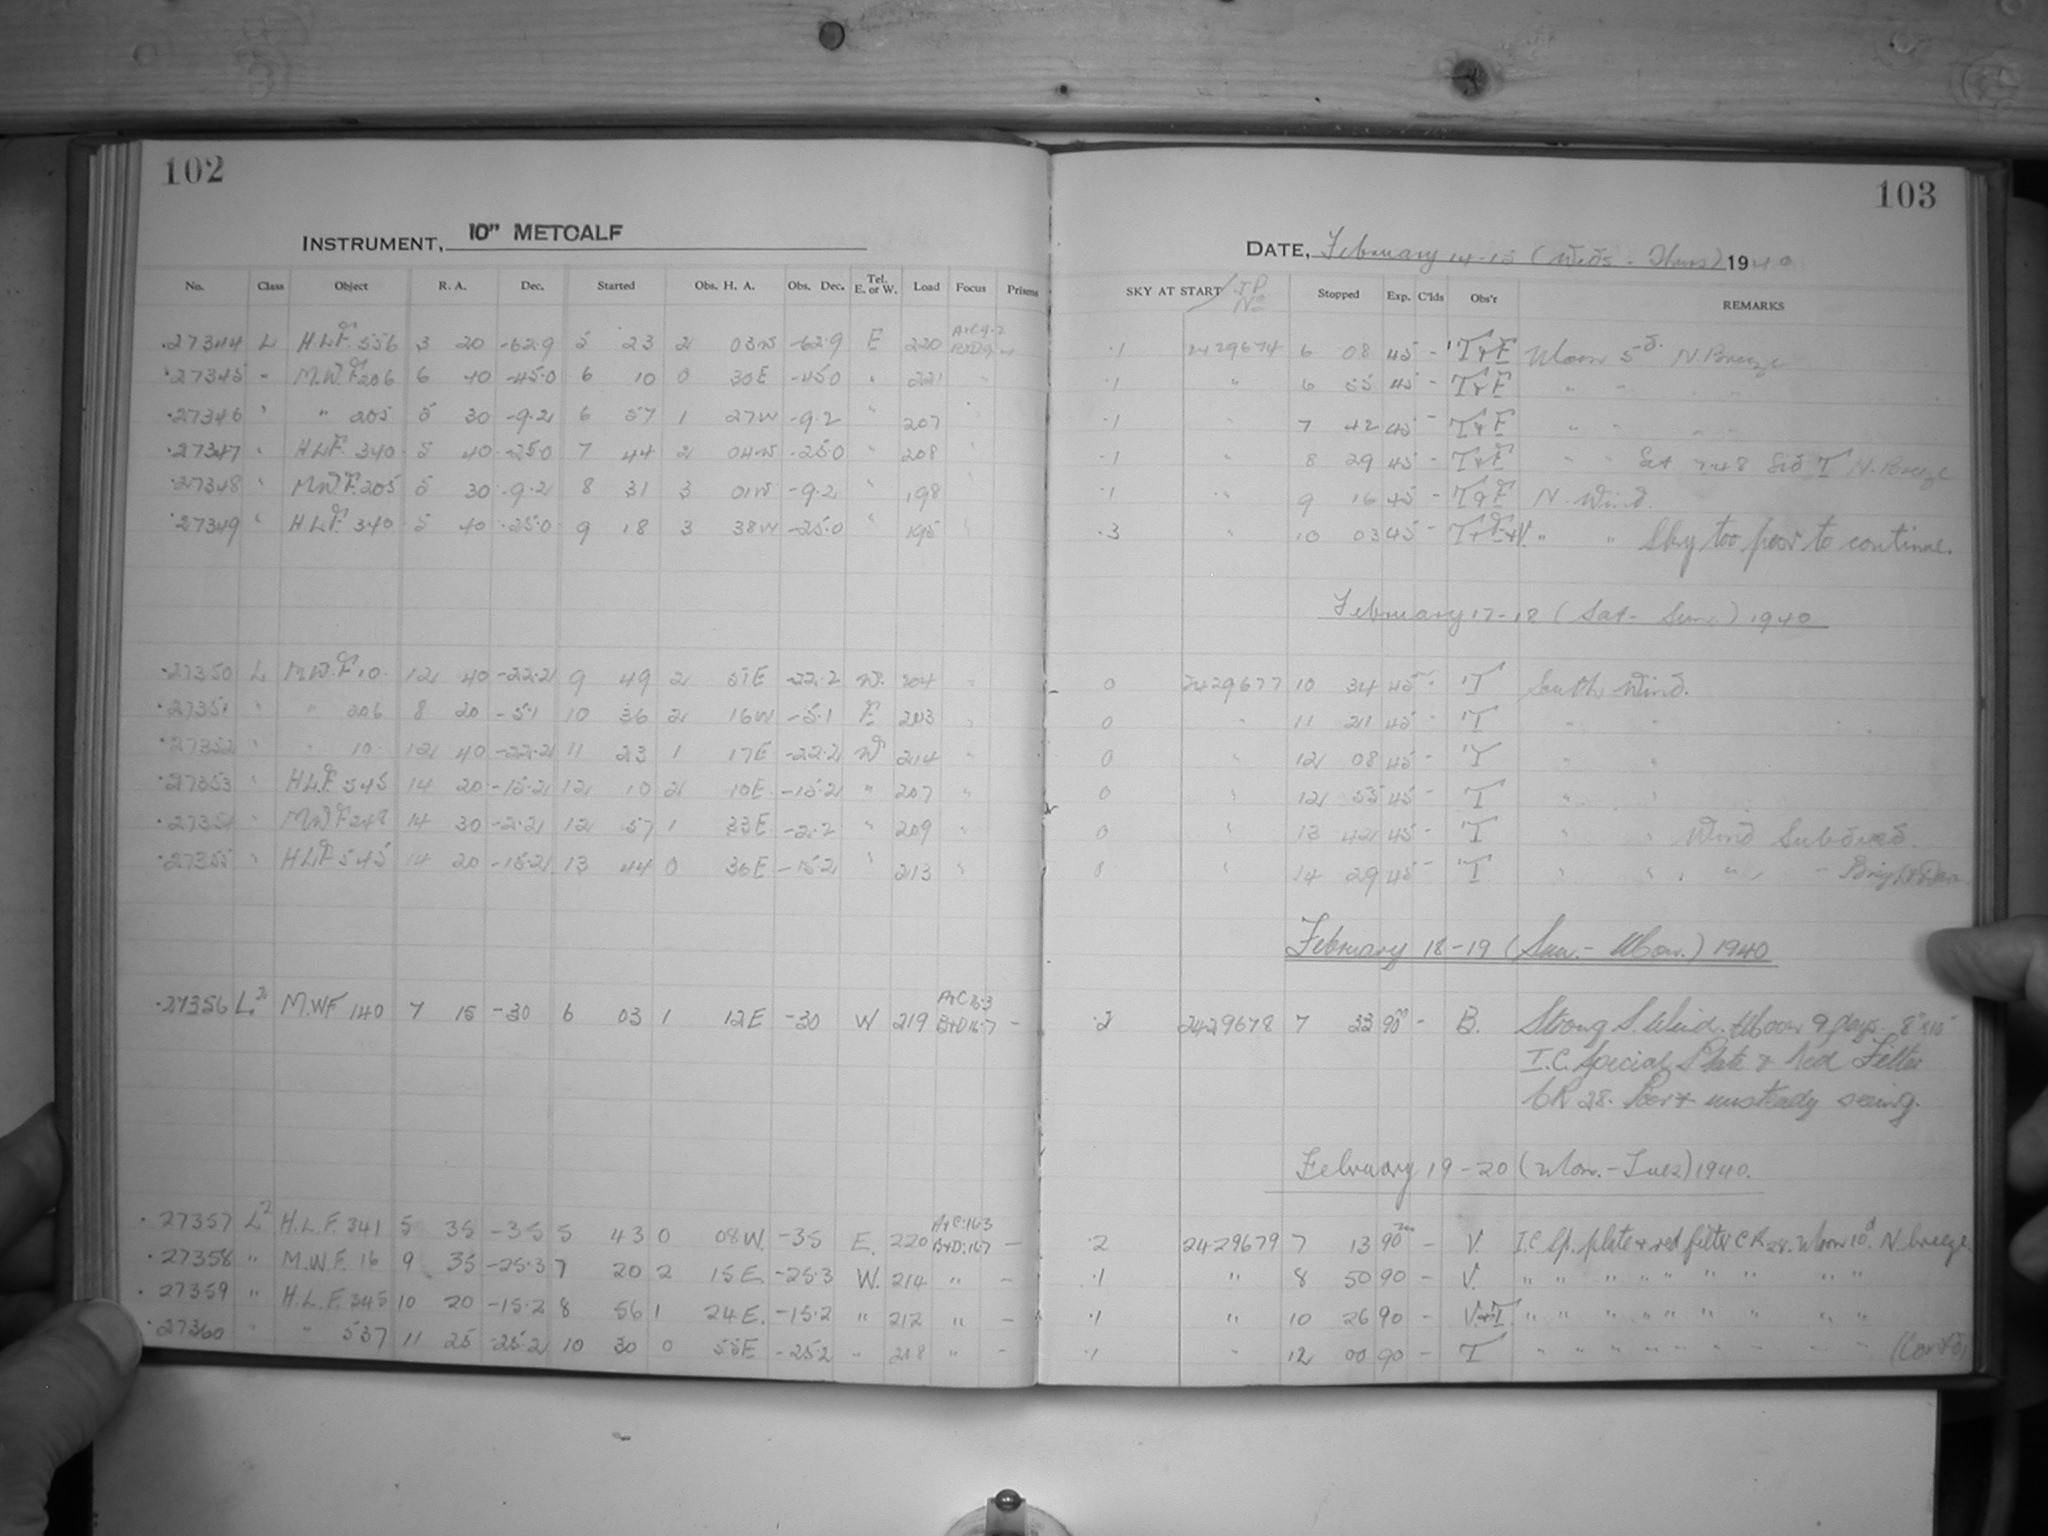 102
INSTRUMENT, 10" METCALF
No. Class Object R. A. Dec. Started Obs. H. A. Obs. Dec. Tel. E. or W. Load Focus Prisms
27344 L H.L.F. 556 3 20 -62.9 5 23 2 03W -62.9 E 220 A+C 9.2
27345 " M.W.F. 206 6 40 -45.0 6 10 0 30E -45.0 " 221 "
27346 " " 205 5 30 -9.2 6 57 1 27W -9.2 " 207 "
27347 " H.L.F. 340 5 40 -25.0 7 44 2 04W -25.0 " 208 "
27348 " M.W.F. 205 5 30 -9.2 8 31 3 01W -9.2 " 198 "
27349 " H.L.F. 340 5 40 -25.0 9 18 3 38W -25.0 " 195 "
27350 L M.W.F. 10 12 40 -22.2 9 49 2 51E -22.2 W. 204 "
27351 " " 206 8 20 -5.1 10 36 2 16W -5.1 E 203 "
27352 " " 10 12 40 -22.2 11 23 1 17E -22.2 W 214 "
27353 " H.L.F. 545 14 20 -15.2 12 10 2 10E -15.2 " 207 "
27354 " M.W.F. 248 14 30 -2.2 12 57 1 33E -2.2 " 209 "
27355 " H.L.F. 545 14 20 -15.2 13 44 0 36E -15.2 " 213 "
27356 L2 M.W.F 140 7 15 -30 6 03 1 12E -30 W 219 A+C 16.3 B+D 16.7 -
27357 L2 H.L.F. 341 5 35 -35 5 43 0 08W. -35 E. 220 A+C:16.3 B+D:16.7 -
27358 " M.W.F. 16 9 35 -25.3 7 20 2 15E -25.3 W. 214 " -
27359 " H.L.F. 345 10 20 -15.2 8 56 1 24E. -15.2 " 212 " -
27360 " " 537 11 25 -25.2 10 30 0 55E -25.2 " 218 " -
103
DATE, February 14-15 (Weds - Thurs) 1940
SKY AT START J.D. No Stopped Exp. C'lds Obs'r REMARKS
.1 2429674 6 08 45 - T+F Moon 5d. N. Breeze
.1 " 6 55 45 - T+F " "
.1 " 7 42 45 - T+F " " " "
.1 " 8 29 45 - T+F " " Set 7.48 Sid T N. Breeze
.1 " 9 16 45 - T+F N. Wind.
.3 " 10 03 45 - T+F+V. " " Sky too poor to continue.
February 17-18 (Sat - Sun.) 1940
0 2429677 10 34 45 - T South Wind.
0 " 11 21 45 - T " "
0 " 12 08 45 - T " "
0 " 12 55 45 - T " "
0 " 13 42 45 - T " " Wind Subdued.
0 " 14 29 45 - T " " " " - Bright Dawn
February 18-19 (Sun. - Mon.) 1940
.2 2429678 7 33 90m - B. Strong S. Wind. Moon 9 days. 8"x10"
I.C. Special Plate & Red Filter
CR 28. Poor & unsteady seeing.
February 19-20 (Mon. - Tues) 1940.
.2 2429679 7 13 90m - V. I.C. Sp. plate & red filter C R 28. Moon 10d. N. breeze
.1 " 8 50 90 - V. " " " " " " " " "
.1 " 10 26 90 - V.+T. " " " " " " " " "
.1 " 12 00 90 - T " " " " " " " " " (Cont'd)